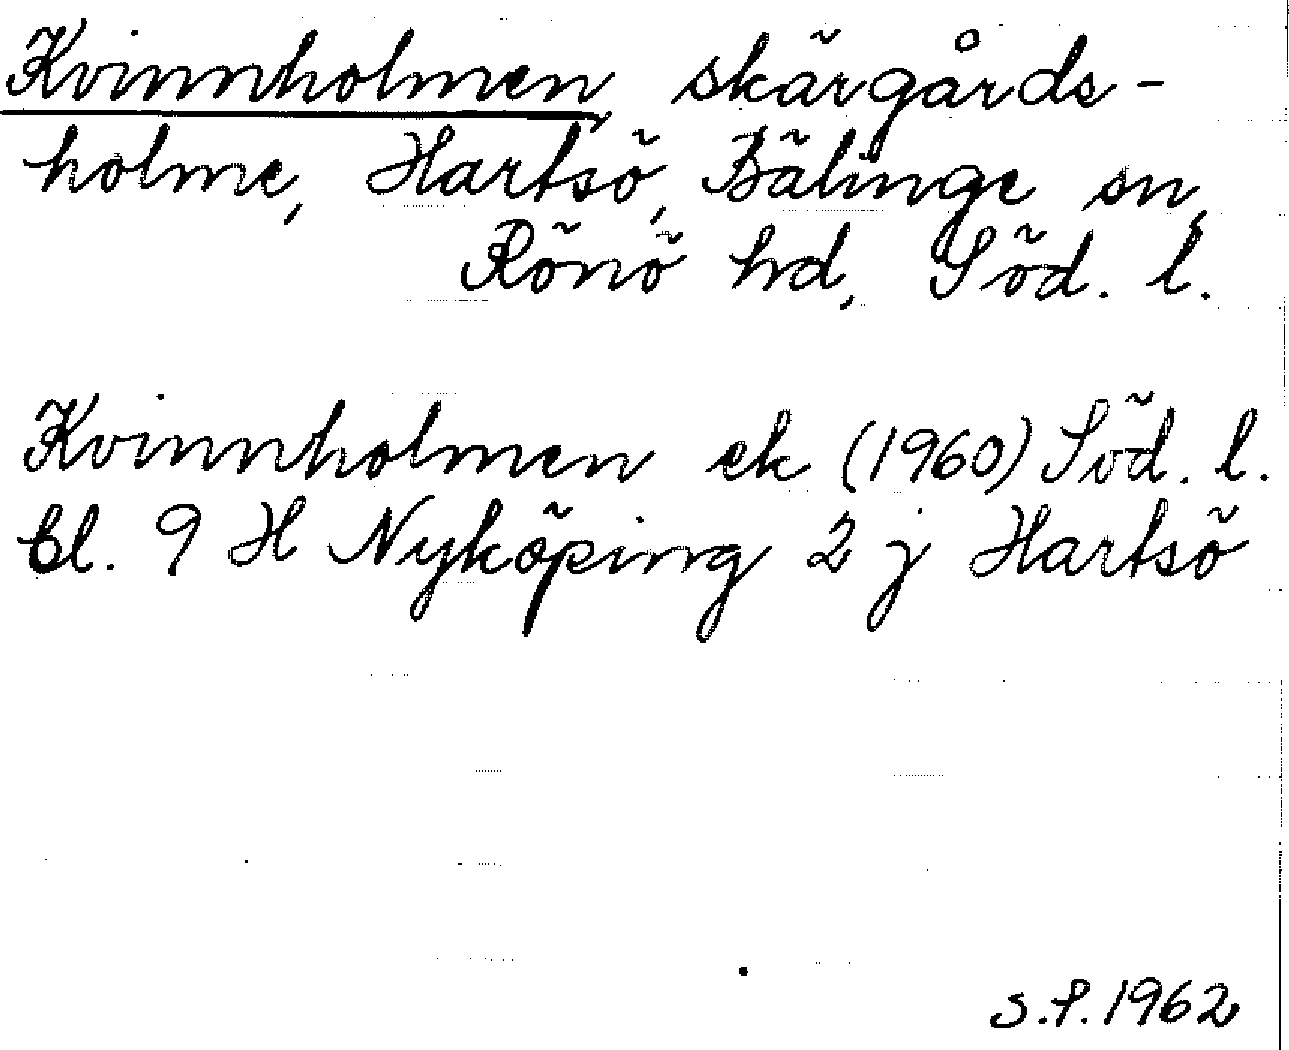 Kvinnholmen skärgårds-
holme, Hartsö, Bälinge sn,
Rönö hd, Söd. l.
Kvinnholmen ek (1960) Söd. l.
bl. 9 H Nyköping 2 j Hartsö
S.P. 1962